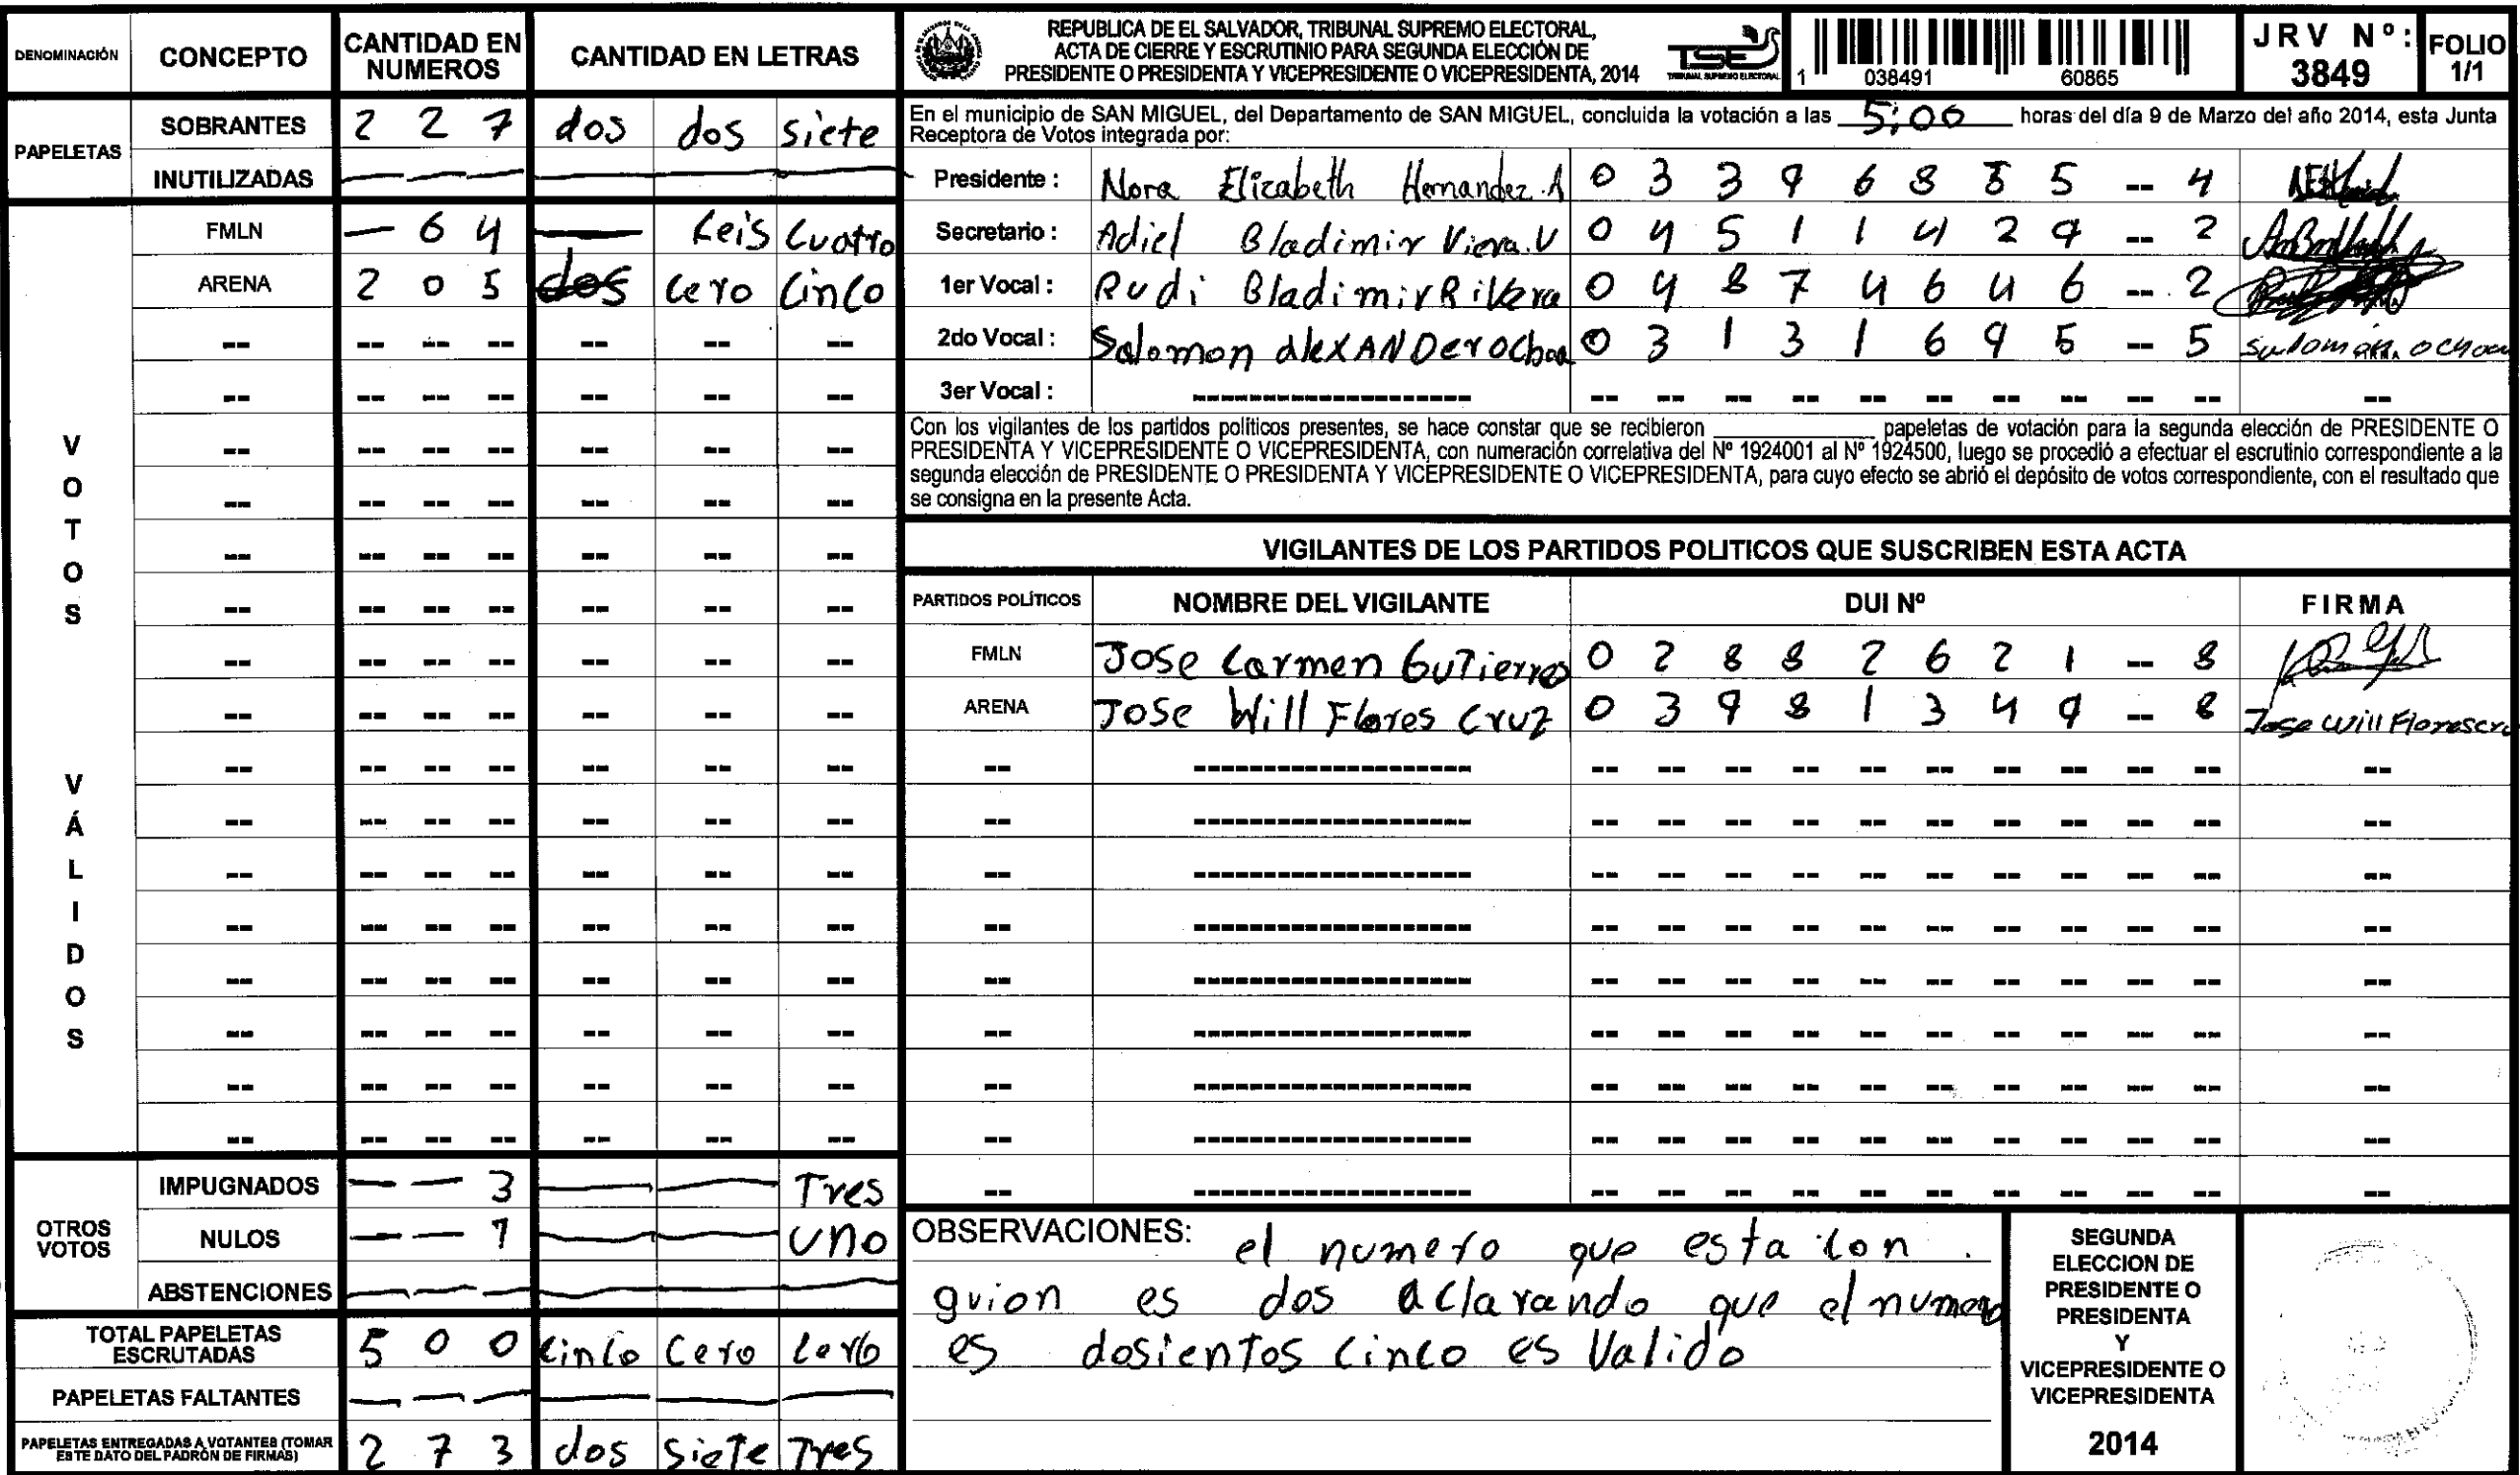 DENOMINACIÓN CONCEPTO CANTIDAD EN NUMEROS CANTIDAD EN LETRAS
PAPELETAS
SOBRANTES 2 2 7 dos dos siete
INUTILIZADAS — — — — — —
VOTOS VÁLIDOS
FMLN — 6 4 — seis cuatro
ARENA 2 0 5 dos cero cinco
OTROS VOTOS
IMPUGNADOS — — 3 — — Tres
NULOS — — 1 — — uno
ABSTENCIONES — — — — — —
TOTAL PAPELETAS ESCRUTADAS 5 0 0 cinco cero cero
PAPELETAS FALTANTES — — — — — —
PAPELETAS ENTREGADAS A VOTANTES (TOMAR ESTE DATO DEL PADRÓN DE FIRMAS) 2 7 3 dos siete Tres
REPUBLICA DE EL SALVADOR, TRIBUNAL SUPREMO ELECTORAL,
ACTA DE CIERRE Y ESCRUTINIO PARA SEGUNDA ELECCIÓN DE
PRESIDENTE O PRESIDENTA Y VICEPRESIDENTE O VICEPRESIDENTA, 2014
TSE
TRIBUNAL SUPREMO ELECTORAL
1 038491 60865
JRV Nº: 3849
FOLIO 1/1
En el municipio de SAN MIGUEL, del Departamento de SAN MIGUEL, concluida la votación a las 5:00 horas del día 9 de Marzo del año 2014, esta Junta
Receptora de Votos integrada por:
Presidente : Nora Elizabeth Hernandez. A 0 3 3 9 6 8 8 5 -- 4
Secretario : Adiel Bladimir Viera. V 0 4 5 1 1 4 2 9 -- 2
1er Vocal : Rudi Bladimir Rivera 0 4 8 7 4 6 4 6 -- 2
2do Vocal : Salomon alexANDer Ochoa 0 3 1 3 1 6 9 5 -- 5 salomón. ochoa
3er Vocal :
Con los vigilantes de los partidos políticos presentes, se hace constar que se recibieron ________ papeletas de votación para la segunda elección de PRESIDENTE O
PRESIDENTA Y VICEPRESIDENTE O VICEPRESIDENTA, con numeración correlativa del Nº 1924001 al Nº 1924500, luego se procedió a efectuar el escrutinio correspondiente a la
segunda elección de PRESIDENTE O PRESIDENTA Y VICEPRESIDENTE O VICEPRESIDENTA, para cuyo efecto se abrió el depósito de votos correspondiente, con el resultado que
se consigna en la presente Acta.
VIGILANTES DE LOS PARTIDOS POLITICOS QUE SUSCRIBEN ESTA ACTA
PARTIDOS POLÍTICOS NOMBRE DEL VIGILANTE DUI Nº FIRMA
FMLN Jose Carmen Gutierrez 0 2 8 8 2 6 2 1 -- 8
ARENA Jose Will Flores Cruz 0 3 9 8 1 3 4 9 -- 8 Jose Will Florescru
OBSERVACIONES: el numero que esta con
guion es dos aclarando que el numero
es dosientos cinco es Valido
SEGUNDA
ELECCION DE
PRESIDENTE O
PRESIDENTA
Y
VICEPRESIDENTE O
VICEPRESIDENTA
2014